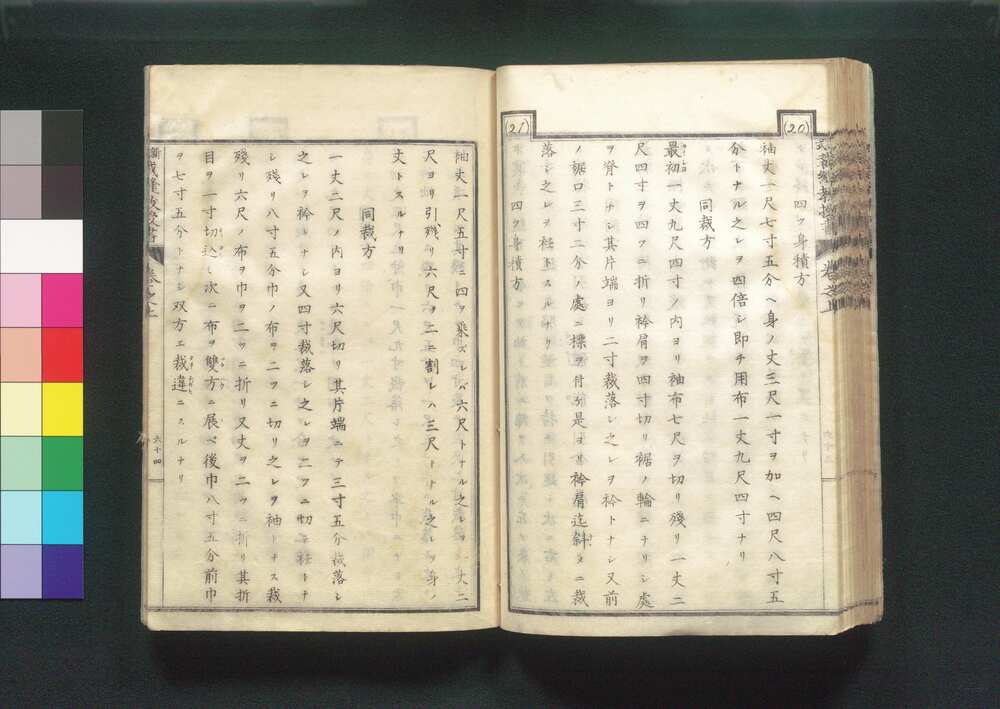 (20)
四ツ身積方
袖丈一尺七寸五分ヘ身ノ丈三尺一寸ヲ加ヘ四尺八寸五
分トナル之レヲ四倍シ即チ用布一丈九尺四寸ナリ
同裁方
最初一丈九尺四寸ノ内ヨリ袖布七尺ヲ切リ殘リ一丈二
尺四寸ヲ四ツニ折リ衿肩ヲ四寸切リ裾ノ輪ニナリシ處
ヲ脊トナシ其片端ヨリ二寸裁落シ之レヲ衿トナシ又前
ノ裾口三寸二分ノ處ニ標ヲ付ケ是ヨリ衿肩迄斜メニ裁
落シ之レヲ衽トスルナリ
(21)
四ツ身積方
袖丈一尺五寸ニ四ヲ乘ズレバ六尺トナル之レヲ一丈二
尺ヨリ引殘リ六尺ヲ二ニ割レハ三尺トナル之レヲ身ノ
丈トスルナリ
同裁方
一丈二尺ノ内ヨリ六尺切リ其片端ニテ三寸五分裁落シ
之レヲ衿トナシ又四寸裁落シ之レヲ二ツニ切レ衽トナ
シ殘リ八寸五分巾ノ布ヲ二ツニ切リ之レヲ袖トナス裁
殘リ六尺ノ布ヲ巾ヲ二ツニ折リ又丈ヲ二ツニ折リ其折
目ヲ一寸切込ミ次ニ布ヲ雙方ニ展ベ後巾八寸五分前巾
ヲ七寸五分トナシ双方エ裁違ニスルナリ
裁縫教授書 卷之上
六十四